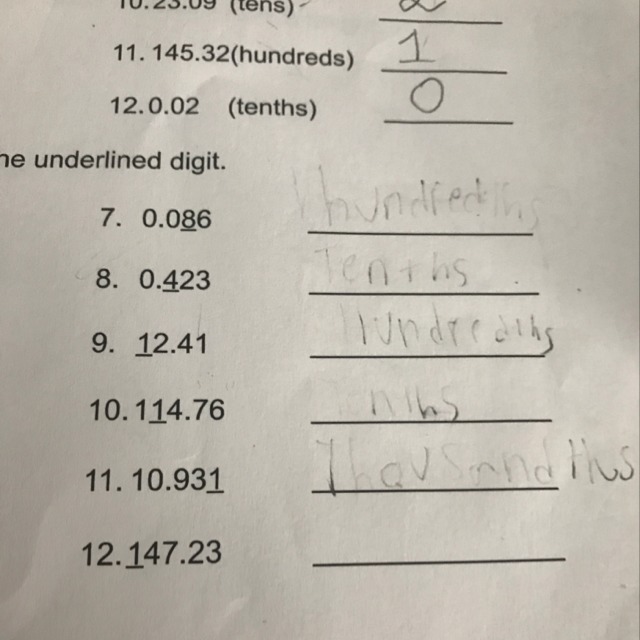 10. 23.09 (tens) 2
11. 145.32(hundreds) 1
12. 0.02 (tenths) 0
he underlined digit.
7. 0.086 hundredths
8. 0.423 Tenths
9. 12.41 Hundredths
10. 114.76
11. 10.931 Thousandths
12. 147.23